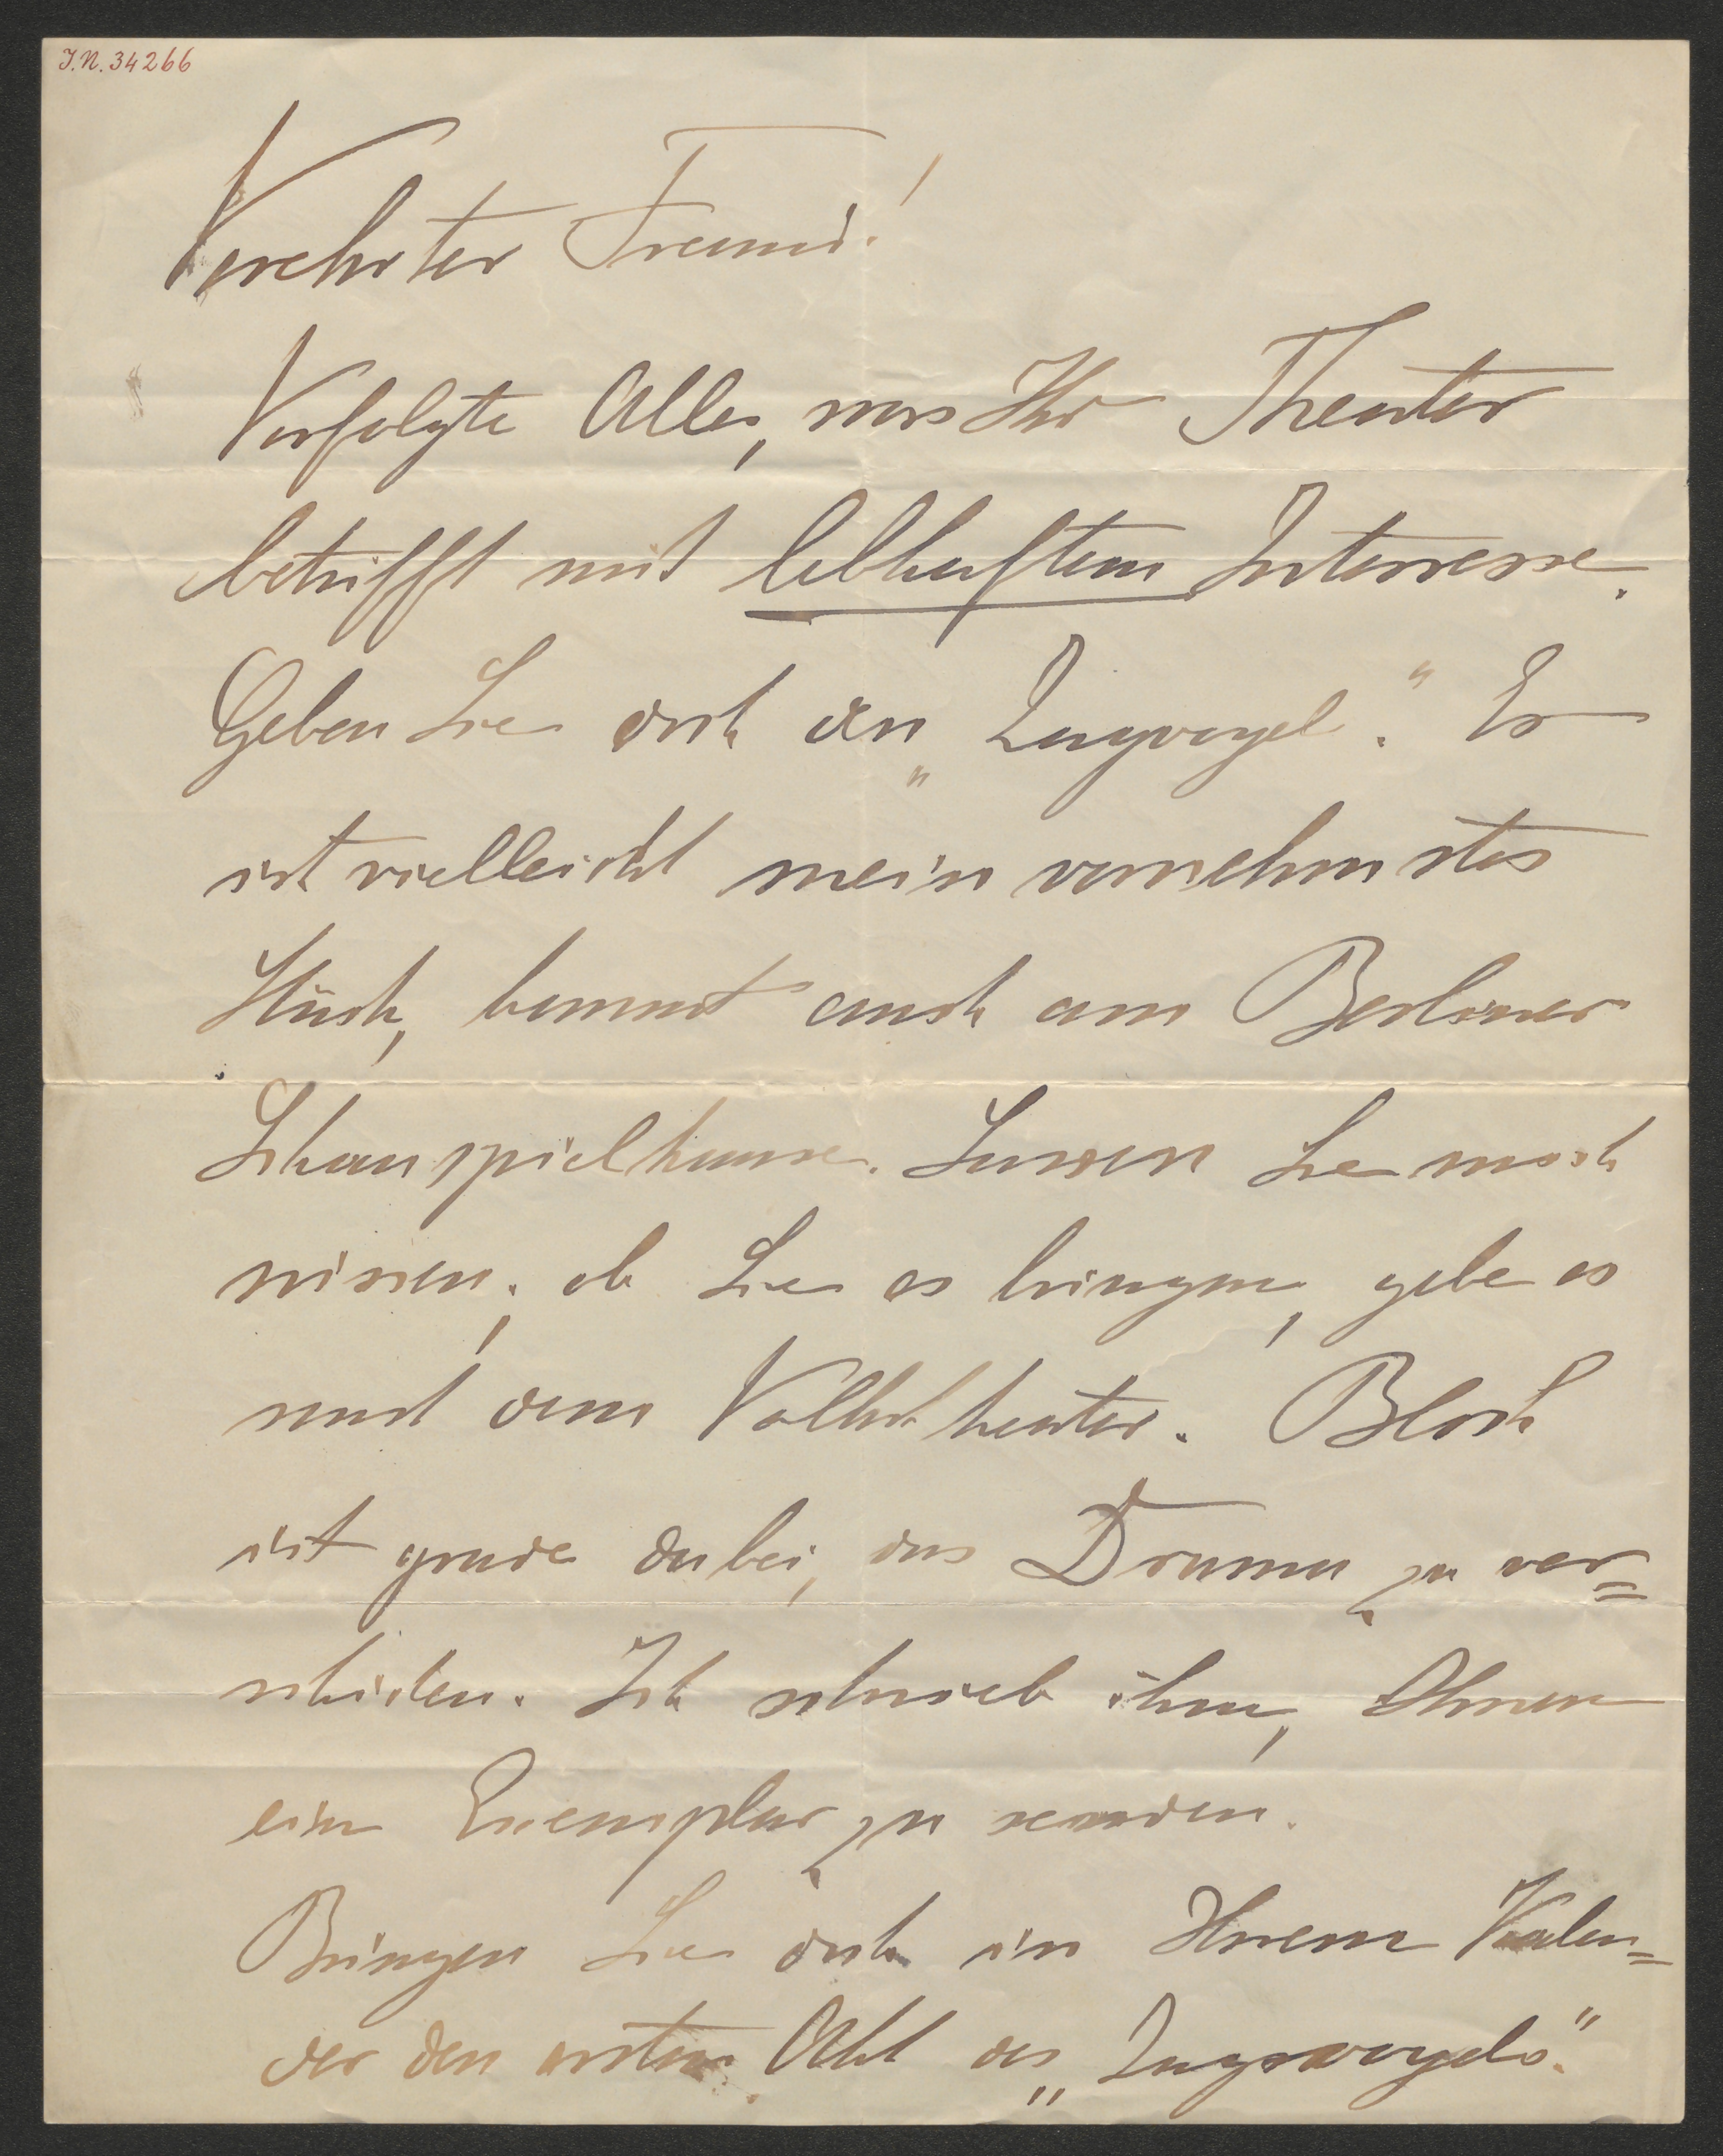 J.N. 34266
Verehrter Freund!
Verfolgte Alles, was Ihr Theater
betrifft mit lebhaftem Interesse.
Geben Sie doch den „Zugvogel“. Er
ist vielleicht mein vornehmstes
Stück, kommt auch am Berliner
Schauspielhause. Lassen Sie mich
wissen, ob Sie es bringen, gebe es
sonst dem Volkstheater. Bloch
ist grade dabei, das Drama zu ver=
schicken. Ich schrieb ihm, Ihnen
ein Exemplar zu senden.
Bringen Sie doch in Ihrem Kalen=
der den ersten Akt des „Zugvogels“.